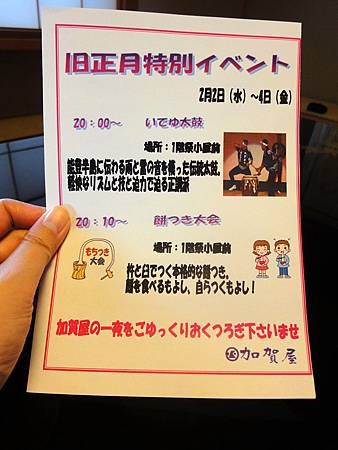 旧正月特別イベント
2月2日（水）～4日（金）
20：00～　いでゆ太鼓
場所：1階祭小屋前
能登半島に伝わる雨と雷の音を模った伝統太鼓。
軽快なリズムと技と迫力で迫る正調派
20：10～　餅つき大会
場所：1階祭小屋前
もちつき
大会
杵と臼でつく本格的な餅つき。
餅を食べるもよし、自らつくもよし！
加賀屋の一夜をごゆっくりおくつろぎ下さいませ
加賀屋